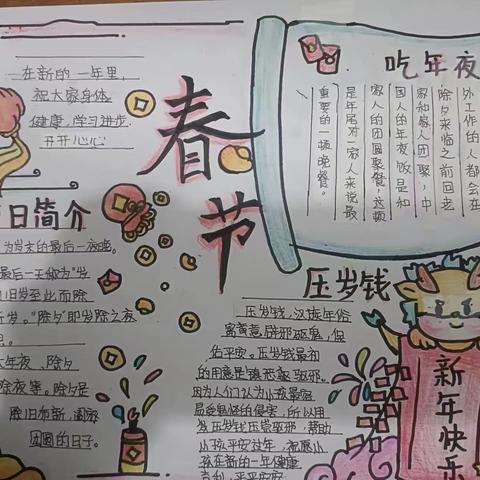 在新的一年里,
祝大家身体
健康,学习进步,
开开心心
春节
吃年夜
外工作的人都会在
除夕来临之前回老
家和家人团聚,中
国人的年夜饭是和
家人的团圆聚餐,这顿
是年尾对一家人来说最
重要的一顿晚餐。
日简介
为岁末的最后一夜晚。
最后一天称为"岁
旧岁至此而除
岁。"除夕"即岁除之夜
思。
大年夜、除夕
除夜等。除夕是
除旧布新,阖家
团圆的日子。
压岁钱
压岁钱,汉族年俗
寓意辟邪驱鬼,保
佑平安。压岁钱最初
的用意是镇恶驱邪。
因为人们认为小孩最
易受鬼怪的侵害,所以用
压岁钱压祟驱邪,帮助
小孩平安过年,祝愿小
孩在新的一年健康
吉利、平平安安
新年快乐